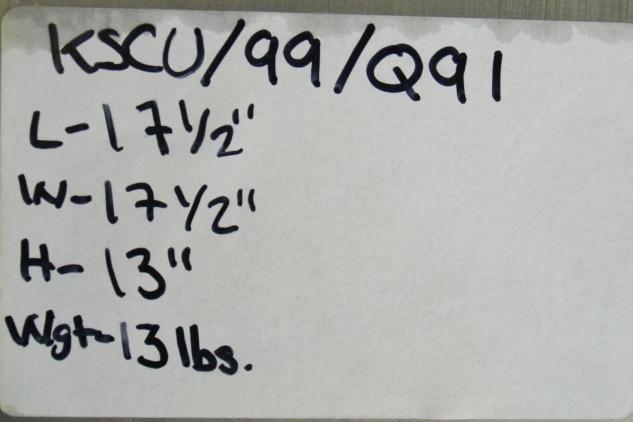 KSCU/99/Q91
L-17 1/2"
W-17 1/2"
H-13"
Wgt-13 lbs.